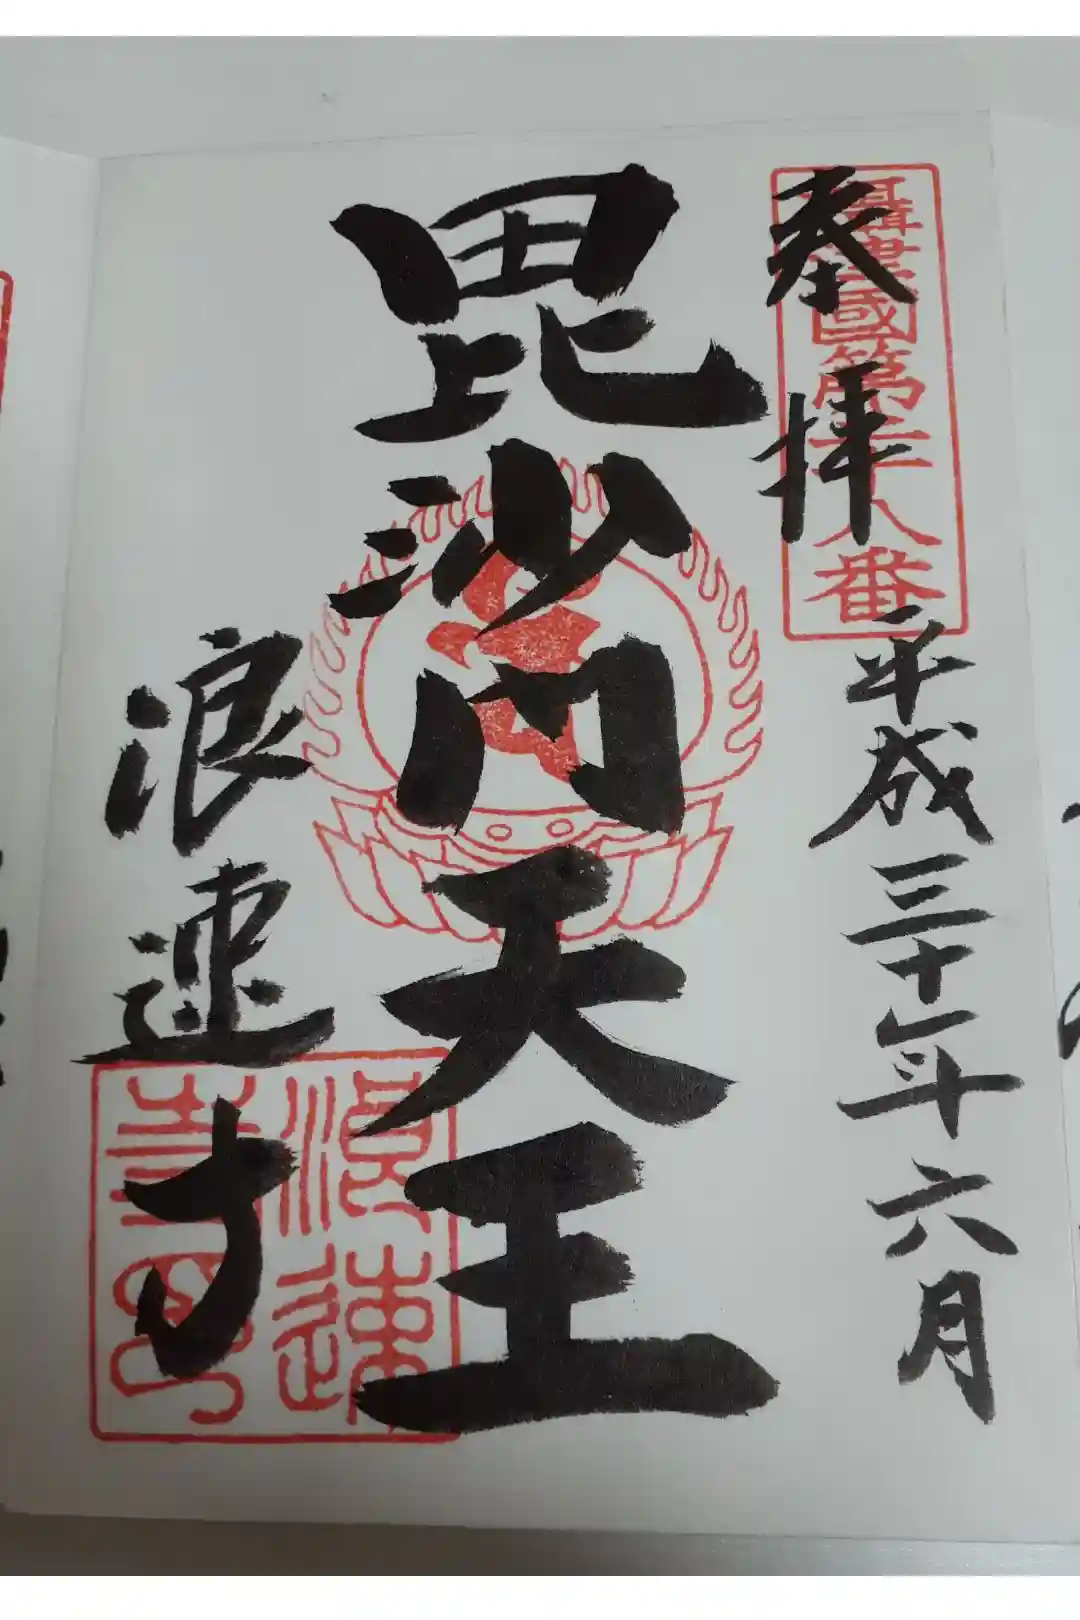 攝津國第十八番
奉拝
平成三十年六月
毘沙門天王
浪速寺
浪速寺印